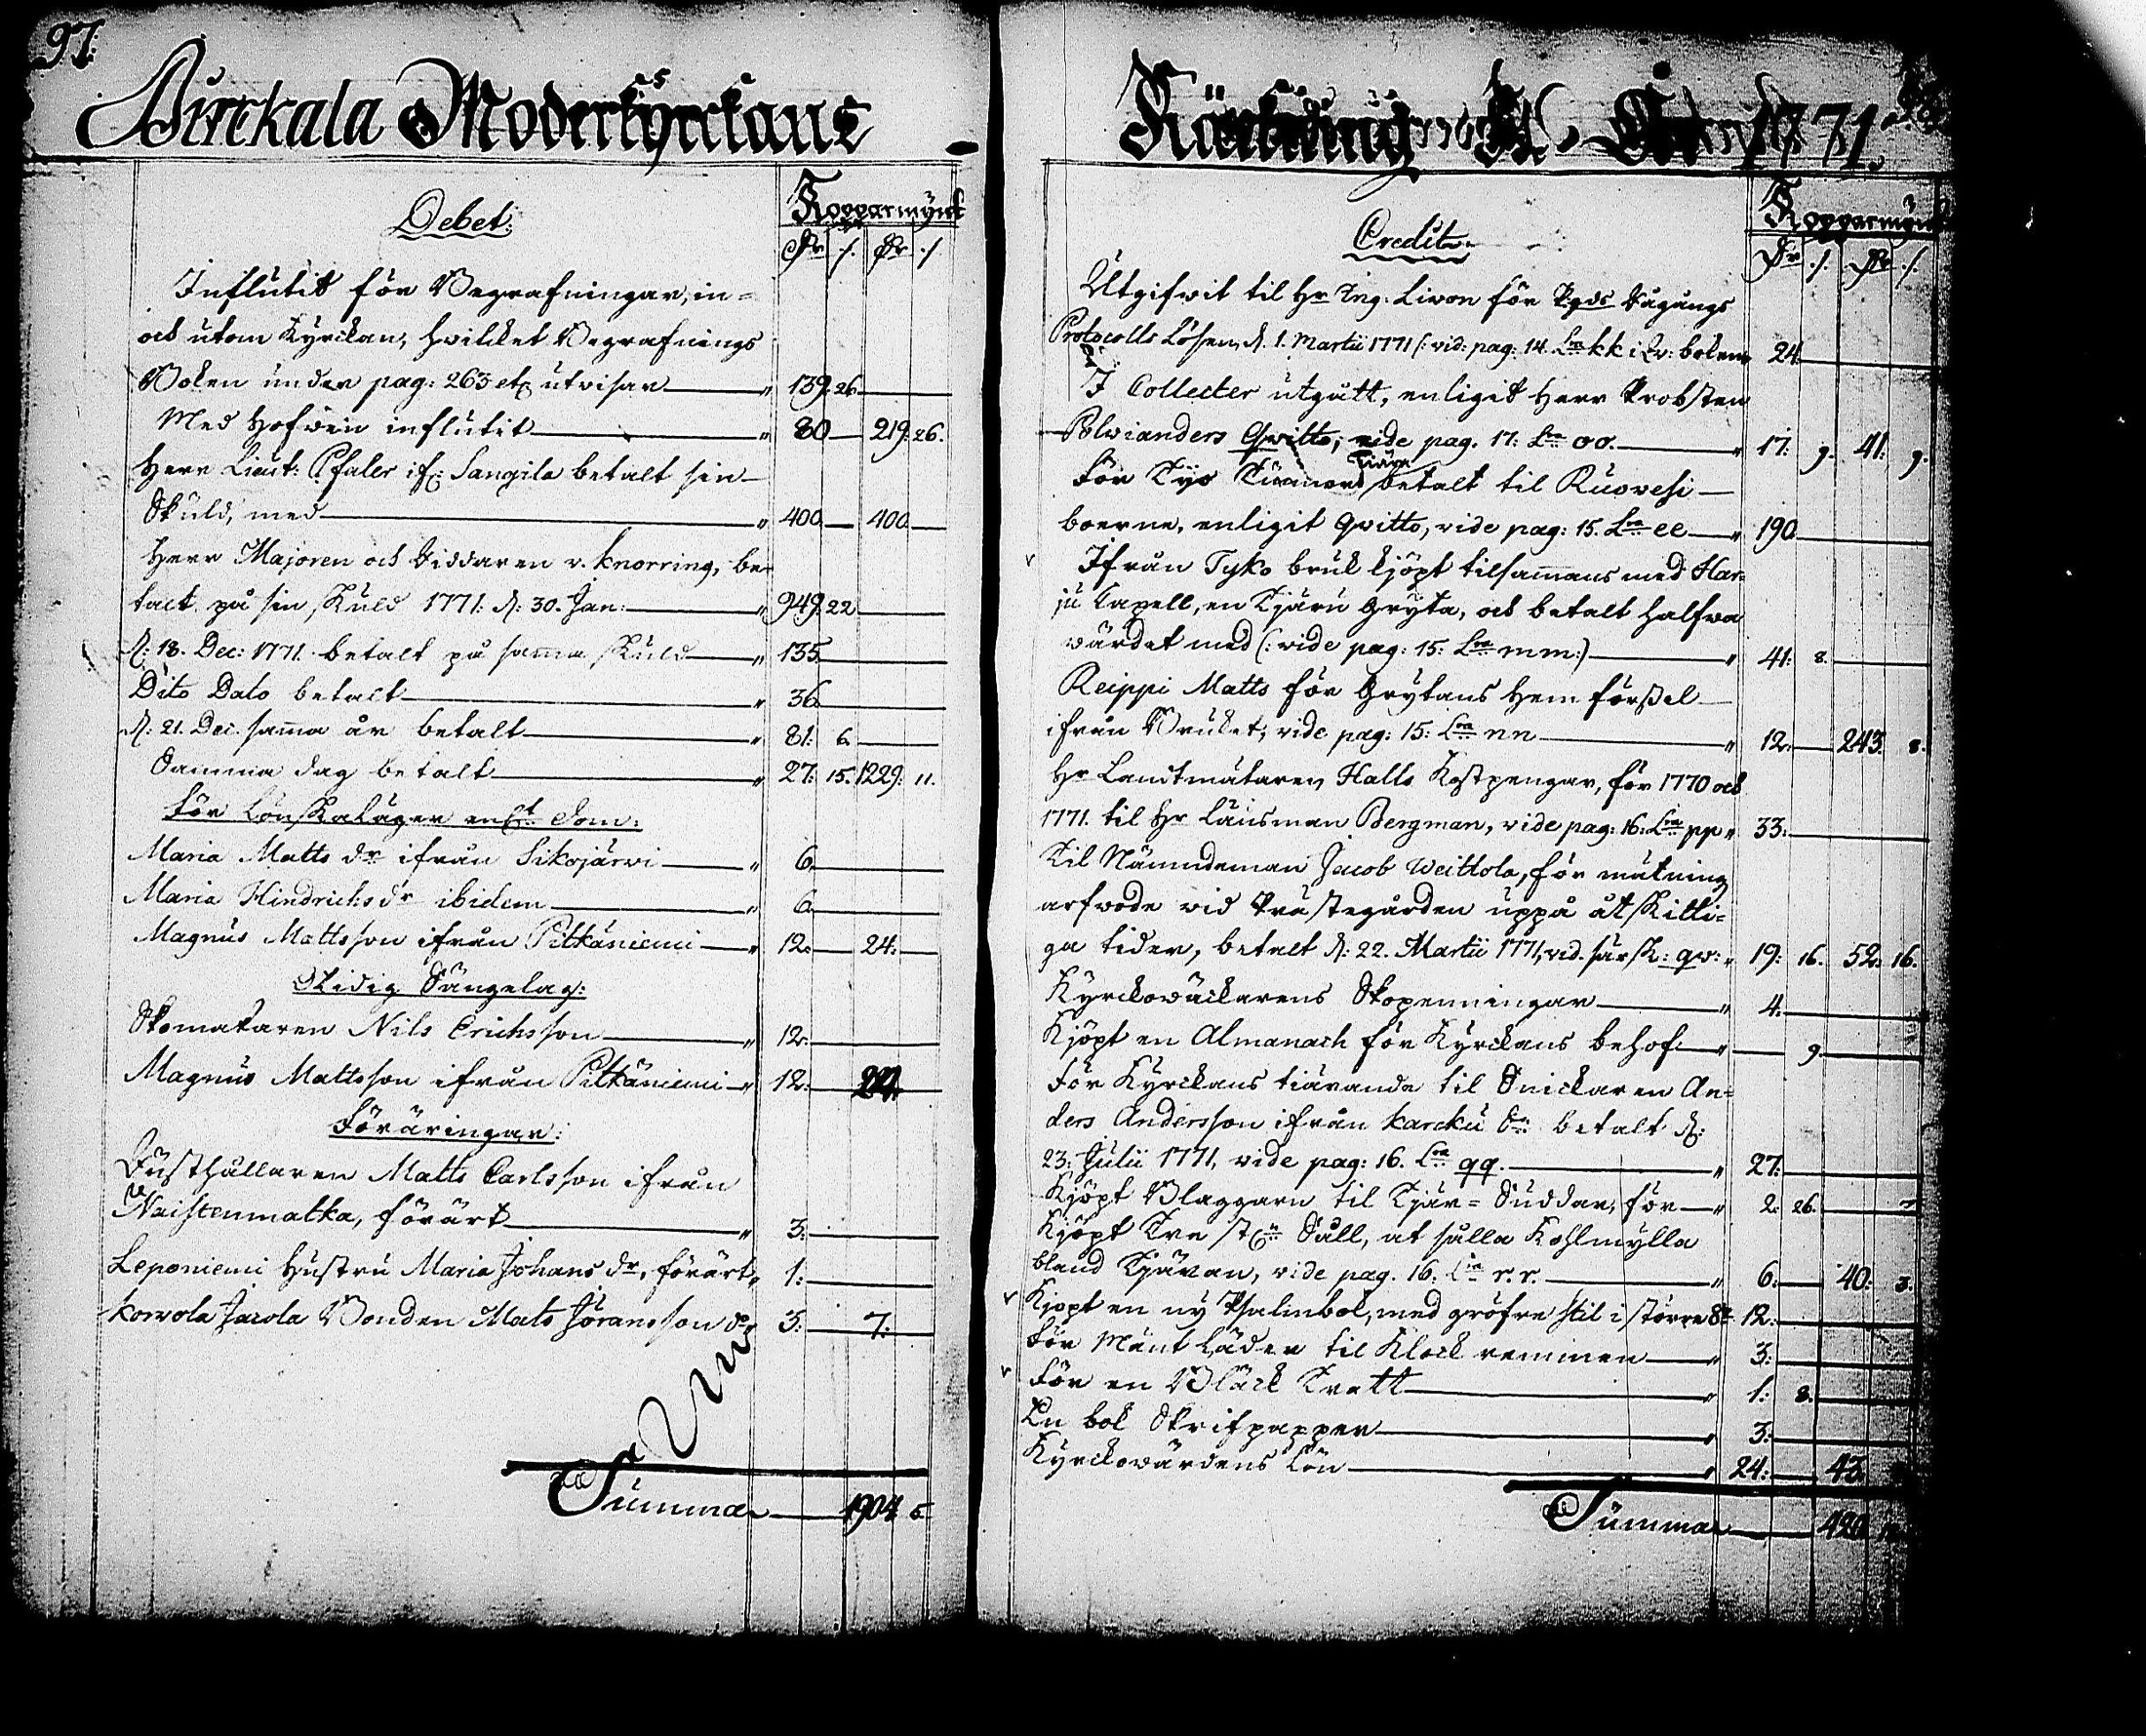 97.
Birckala Moderkyrckans
Debet.
Kopparmynt
Dr ./. Dr ./.
Influtit för Begrafningar, in=
och utom Kyrckan, hvilcket Begrafnings
Boken under pag: 263 etc utvisar " 139. 26
Med Hofven influtit " 80 219: 26.
Herr Lieut: Pfaler if: Sangila betalt sin
Skuld, med " 400 400
Herr Majoren och Riddaren v. Knorring, be=
talt på sin Skuld 1771: d: 30. Jan: " 949. 22
d: 18. Dec: 1771. betalt på samma Skuld " 135
Dito Dato betalt " 36
d: 21. Dec. samma år betalt " 81: 6.
Samma dag betalt " 27: 15. 1229: 11.
För Lönskaläger Som:
Maria Matts dr ifrån Sikojärvi " 6.
Maria Hindrichs dr ibidem " 6.
Magnus Mattsson ifrån Pitkäniemi " 12. 24:
Otidig Sängelag:
Skomakaren Nils Erichsson " 12.
Magnus Mattsson ifrån Pitkäniemi " 12. 24.
Föräringar:
Rusthållaren Matts Carlsson ifrån
Naistenmatka, förärt " 3:
Leponiemi Hustru Maria Johans dr, förärt " 1:
Korvola Jacola Bonden Mats Jöransson do " 3: 7:
Summa 1904 5
Räckning 1771.
Credit.
Kopparmynt
Dr ./. Dr ./.
Utgifwit til Hr Ing. Livon för Rågångs
Protocolls Lösen, d. 1. Martii 1771 (: vid: pag: 14. Lra kk i Qv: boken 24.
I Collecter utgått, enligit Herr Probsten
Polvianders Qvitto, vide pag. 17: Lra oo. " 17: 9. 41: 9.
För Tunnor Tiära betalt til Ruovesi
boerne, enligit Qvitto, vide pag: 15. Lra ee " 190.
Ifrån Tyko bruk kjöpt tilsammans med Har=
ju Capell, en Tjäru Gryta, och betalt halfva
värdet med (: vide pag: 15: Lra mm:) " 41: 8.
Reippi Matts för Grytans Hem förssel
ifrån Bruket; vide pag: 15: Lra nn " 12. 243. 8.
Hr Landtmätaren Halls Kostpengar, för 1770 och
1771. til Hr Länsman Bergman, vide pag: 16: Lra pp " 33:
Til Nämndeman Jacob Weittola, för mätning
arfvode vid Prästegården uppå åtskilli=
ga tider, betalt d: 22. Martii 1771, vid. " 19: 16. 52: 16.
Kyrckoväckarens Skopenningar " 4.
Kjöpt en Almanach för Kyrckans behof " 9.
För Kyrckans tiärande til Snickaren An=
ders Andersson ifrån Karcku betalt d:
23: Julii 1771, vide pag: 16. Lra qq. " 27:
Kjöpt Blaggarn til Tjär= Suddar, för " 2. 26.
Kjöpt Tre st Såll, at sålla Kohlmylla
bland Tjäran, vide pag. 16: Lra r.r. " 6: 40: 3.
Kjöpt en ny Psalmbok, med gröfre stil i större 8o 12:
För Läder til Klock remmen " 3:
För en Bläck Tratt " 1: 8.
En bok Skrifpapper " 3:
Kyrckovärdens Lön " 24: 43.
Summa 420